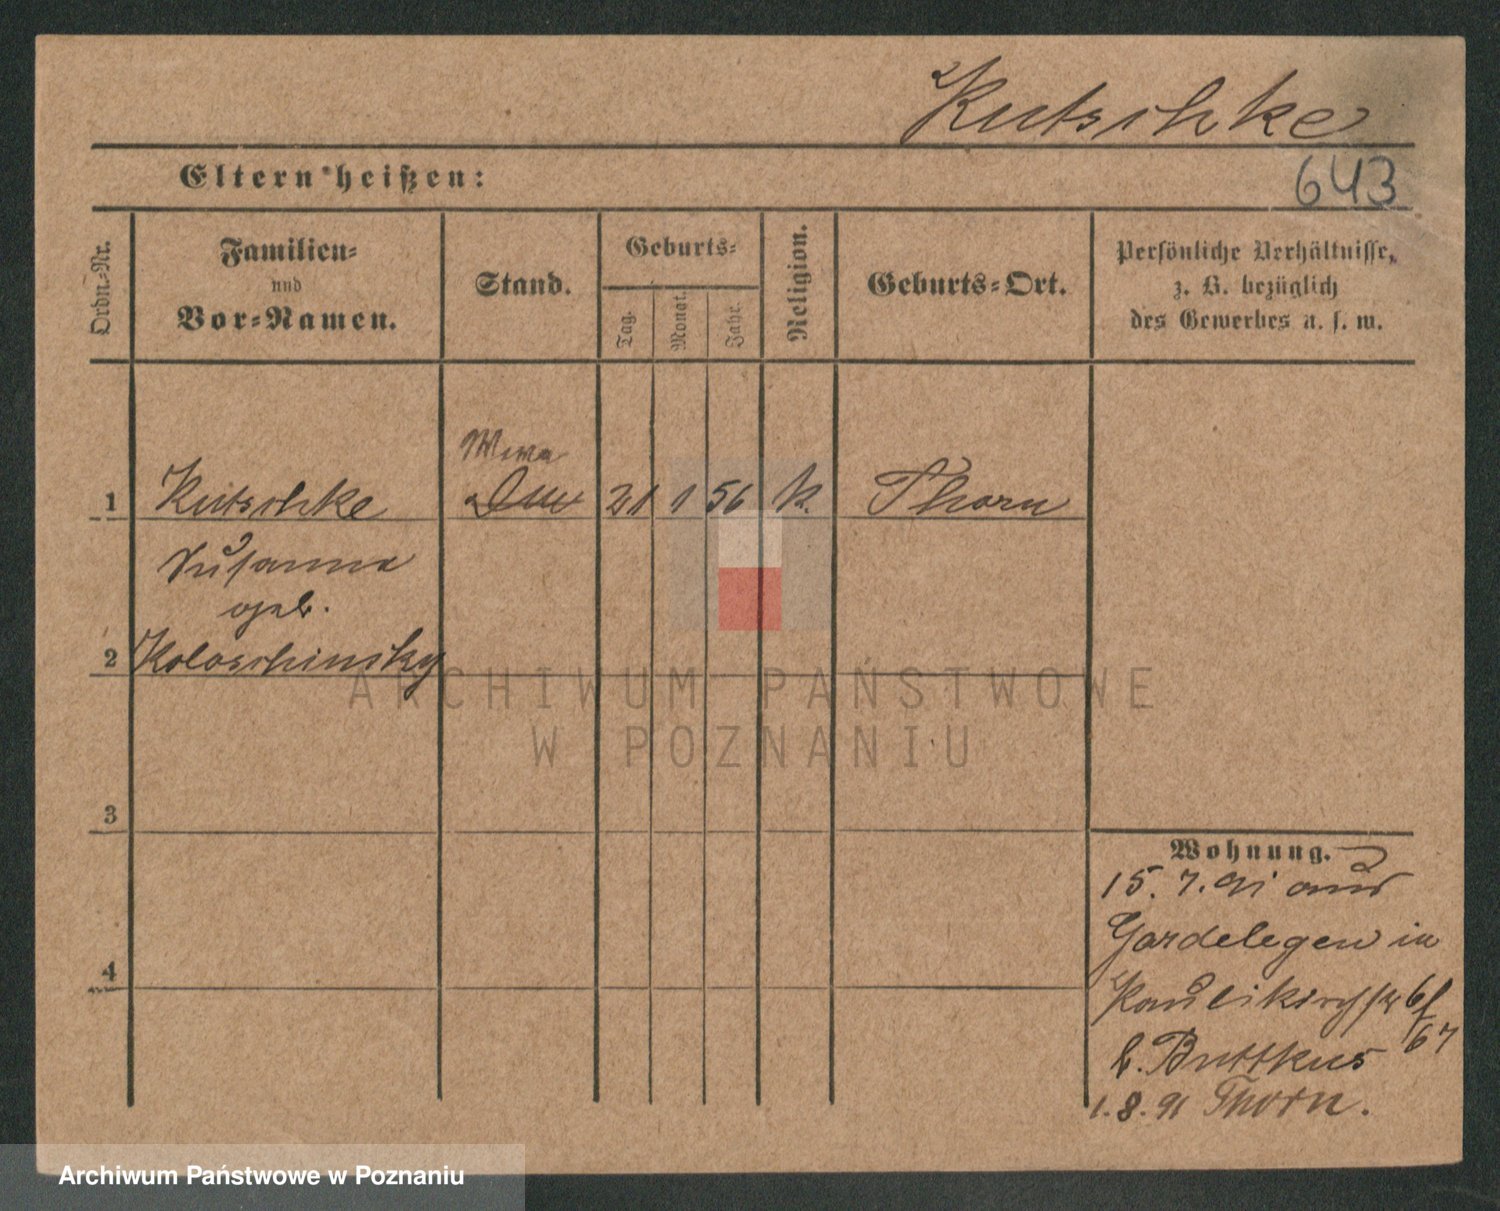 Kutschke
Eltern heißen:
643
Ordn.-Nr.
Familien-
und
Vor-Namen.
Stand.
Geburts-
Tag.
Monat.
Jahr.
Religion.
Geburts-Ort.
Persönliche Verhältnisse,
z. B. bezüglich
des Gewerbes u. s. w.
1 Kutschke 21 1 56 k. Thorn
Susanna
geb.
2 Koloschinsky
3
4
Wohnung.
15. 7. 91 aus
Gardelegen in
Paulikirchstr
b. Buttkus 67
1. 8. 91 Thorn.
ARCHIWUM PAŃSTWOWE
W POZNANIU
Archiwum Państwowe w Poznaniu